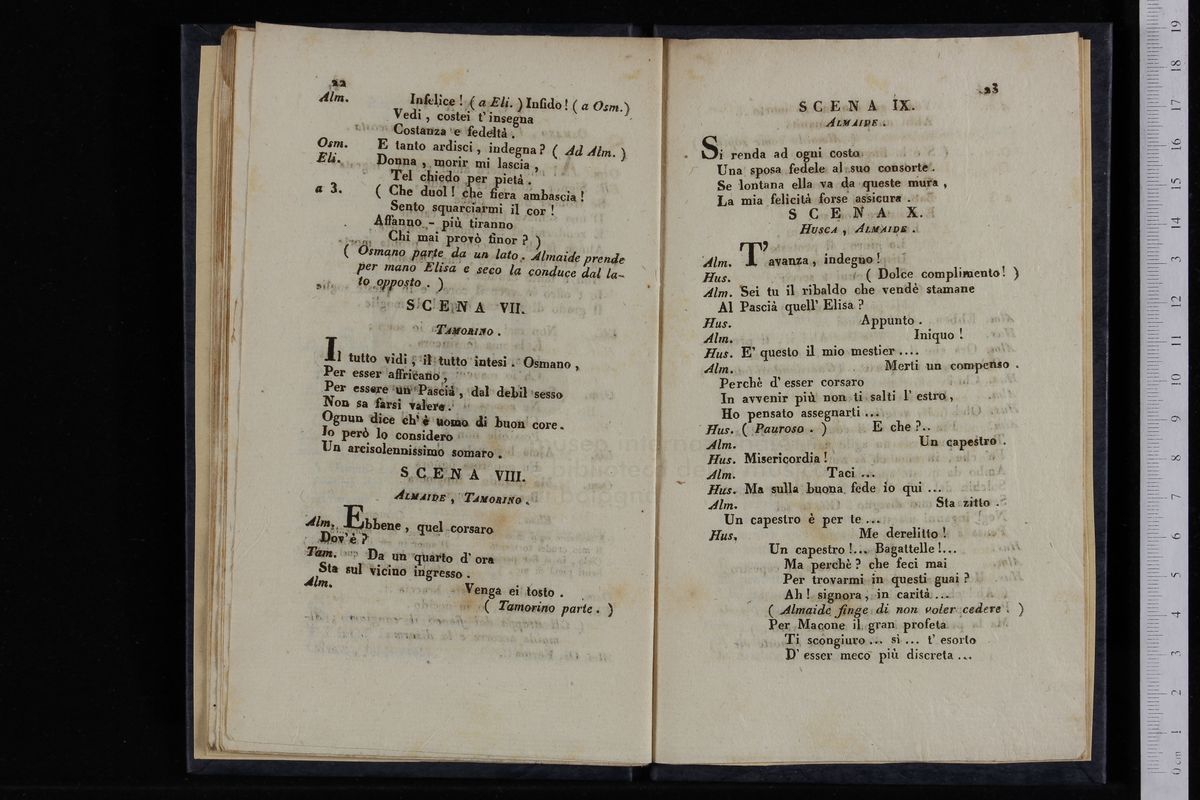 22
Alm. Infelice! (a Eli.) Infido! (a Osm.)
Vedi, costei t' insegna
Costanza e fedeltà.
Osm. E tanto ardisci, indegna? (Ad Alm.)
Eli. Donna, morir mi lascia,
Tel chiedo per pietà.
a 3. (Che duol! che fiera ambascia!
Sento squarciarmi il cor!
Affanno - più tiranno
Chi mai provò finor?)
(Osmano parte da un lato. Almaide prende
per mano Elisa e seco la conduce dal la-
to opposto.)
SCENA VII.
TAMORINO.
Il tutto vidi, il tutto intesi. Osmano,
Per esser affricano,
Per essere un Pascià, dal debil sesso
Non sa farsi valere.
Ognun dice ch' è uomo di buon core.
Io però lo considero
Un arcisolennissimo somaro.
SCENA VIII.
ALMAIDE, TAMORINO.
Alm. Ebbene, quel corsaro
Dov' è?
Tam. Da un quarto d' ora
Sta sul vicino ingresso.
Alm. Venga ei tosto.
(Tamorino parte.)
23
SCENA IX.
ALMAIDE.
Si renda ad ogni costo
Una sposa fedele al suo consorte.
Se lontana ella va da queste mura,
La mia felicità forse assicura.
SCENA X.
HUSCA, ALMAIDE.
Alm. T' avanza, indegno!
Hus. (Dolce complimento!)
Alm. Sei tu il ribaldo che vendè stamane
Al Pascià quell' Elisa?
Hus. Appunto.
Alm. Iniquo!
Hus. E' questo il mio mestier....
Alm. Merti un compenso.
Perchè d' esser corsaro
In avvenir più non ti salti l' estro,
Ho pensato assegnarti...
Hus. (Pauroso.) E che?..
Alm. Un capestro.
Hus. Misericordia!
Alm. Taci...
Hus. Ma sulla buona fede io qui...
Alm. Sta zitto.
Un capestro è per te...
Hus. Me derelitto!
Un capestro!... Bagattelle!...
Ma perchè? che feci mai
Per trovarmi in questi guai?
Ah! signora, in carità...
(Almaide finge di non voler cedere.)
Per Macone il gran profeta
Ti scongiuro... sì... t' esorto
D' esser meco più discreta...
museo interna
biblioteca de
di bologna
0 cm 1 2 3 4 5 6 7 8 9 10 11 12 13 14 15 16 17 18 19